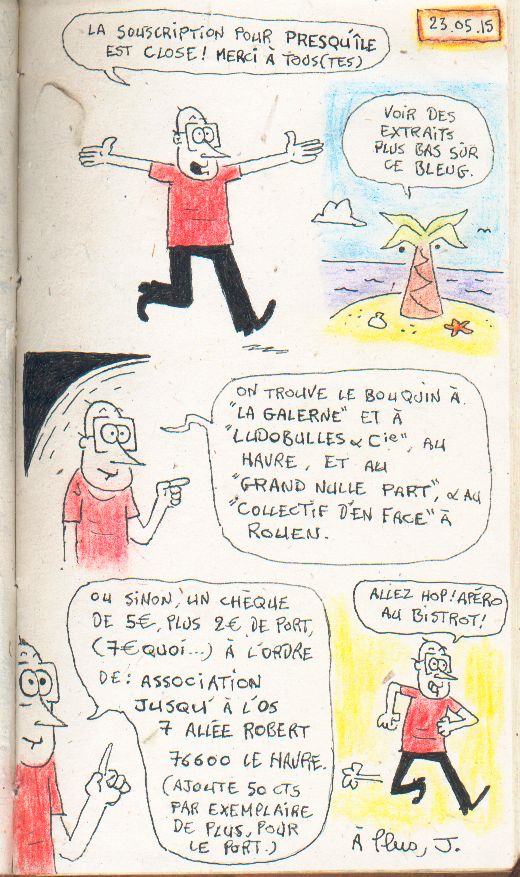 23.05.15
LA SOUSCRIPTION POUR PRESQU'ÎLE
EST CLOSE! MERCI À TOUS(TES)
VOIR DES
EXTRAITS
PLUS BAS SUR
CE BLEUG.
ON TROUVE LE BOUQUIN À
"LA GALERNE" ET À
"LUDOBULLES & Cie", AU
HAVRE, ET AU
"GRAND NULLE PART", & AU
"COLLECTIF D'EN FACE" À
ROUEN.
OU SINON, UN CHÈQUE
DE 5€, PLUS 2€ DE PORT,
(7€ QUOI...) À L'ORDRE
DE: ASSOCIATION
JUSQU'À L'OS
7 ALLÉE ROBERT
76600 LE HAVRE.
(AJOUTE 50 CTS
PAR EXEMPLAIRE
DE PLUS, POUR
LE PORT.)
ALLEZ HOP! APÉRO
AU BISTROT!
À Plus, J.